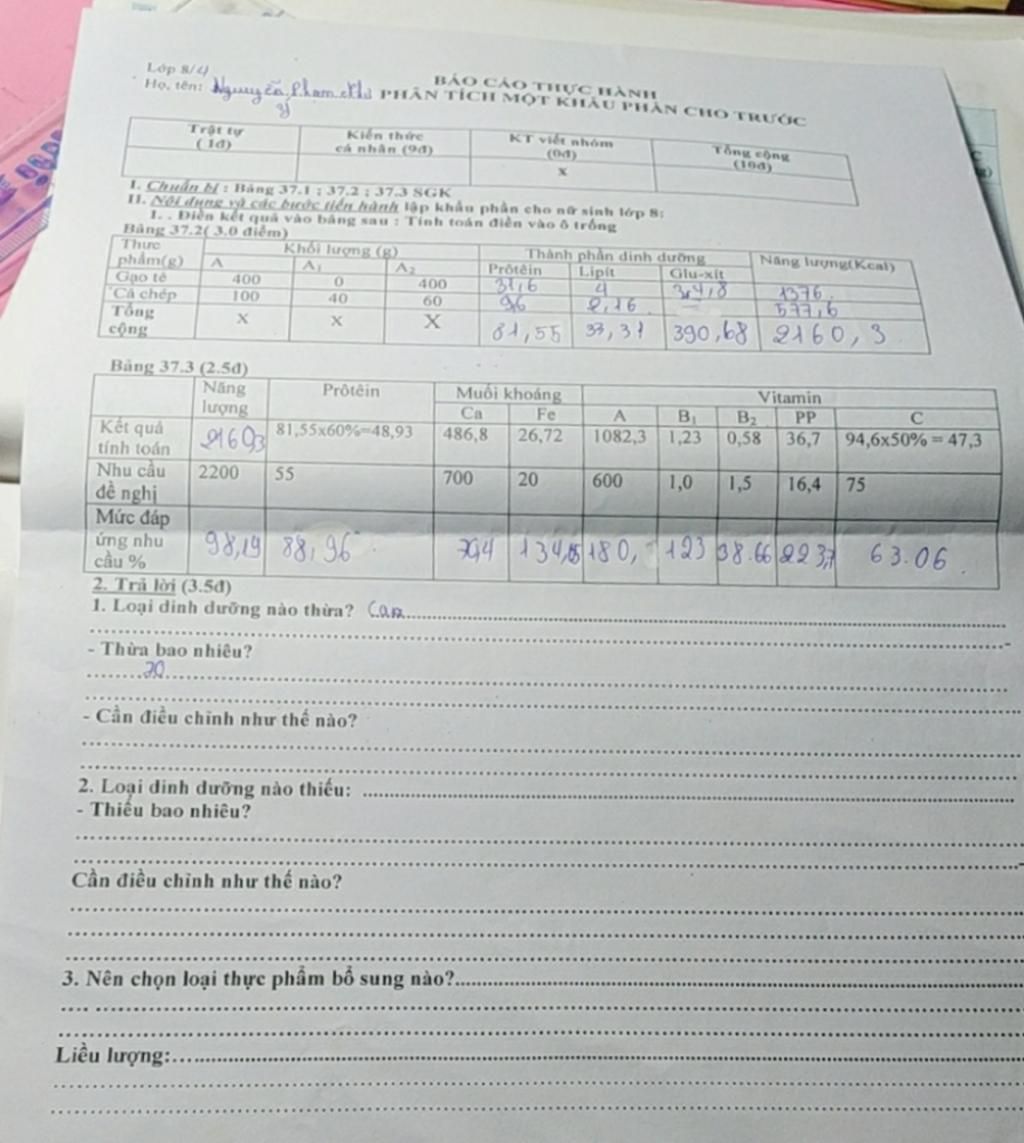 Lớp 8/4
BÁO CÁO THỰC HÀNH
Họ, tên: Nguyễn Phạm PHÂN TÍCH MỘT KHẨU PHẦN CHO TRƯỚC
Trật tự (1đ) Kiến thức cá nhân (9đ) KT viết nhóm (0đ) Tổng cộng (10đ)
x
I. Chuẩn bị : Bảng 37.1 ; 37.2 ; 37.3 SGK
II. Nội dung và các bước tiến hành lập khẩu phần cho nữ sinh lớp 8:
1. . Điền kết quả vào bảng sau : Tính toán điền vào ô trống
Bảng 37.2( 3.0 điểm)
Thực phẩm(g) Khối lượng (g) Thành phần dinh dưỡng Năng lượng(Kcal)
A A1 A2 Prôtêin Lipít Glu-xít
Gạo tẻ 400 0 400 31,6 4 1376
Cá chép 100 40 60 96 2,16 577,6
Tổng cộng X X X 81,55 33,31 390,68 2160,3
Bảng 37.3 (2.5đ)
Năng lượng Prôtêin Muối khoáng Vitamin
Ca Fe A B1 B2 PP C
Kết quả tính toán 2160,3 81,55x60%=48,93 486,8 26,72 1082,3 1,23 0,58 36,7 94,6x50% = 47,3
Nhu cầu đề nghị 2200 55 700 20 600 1,0 1,5 16,4 75
Mức đáp ứng nhu cầu % 98,19 88,96 180, 123 38.66 223,7 63.06
2. Trả lời (3.5đ)
1. Loại dinh dưỡng nào thừa?
- Thừa bao nhiêu?
- Cần điều chỉnh như thế nào?
2. Loại dinh dưỡng nào thiếu:
- Thiếu bao nhiêu?
Cần điều chỉnh như thế nào?
3. Nên chọn loại thực phẩm bổ sung nào?
Liều lượng: